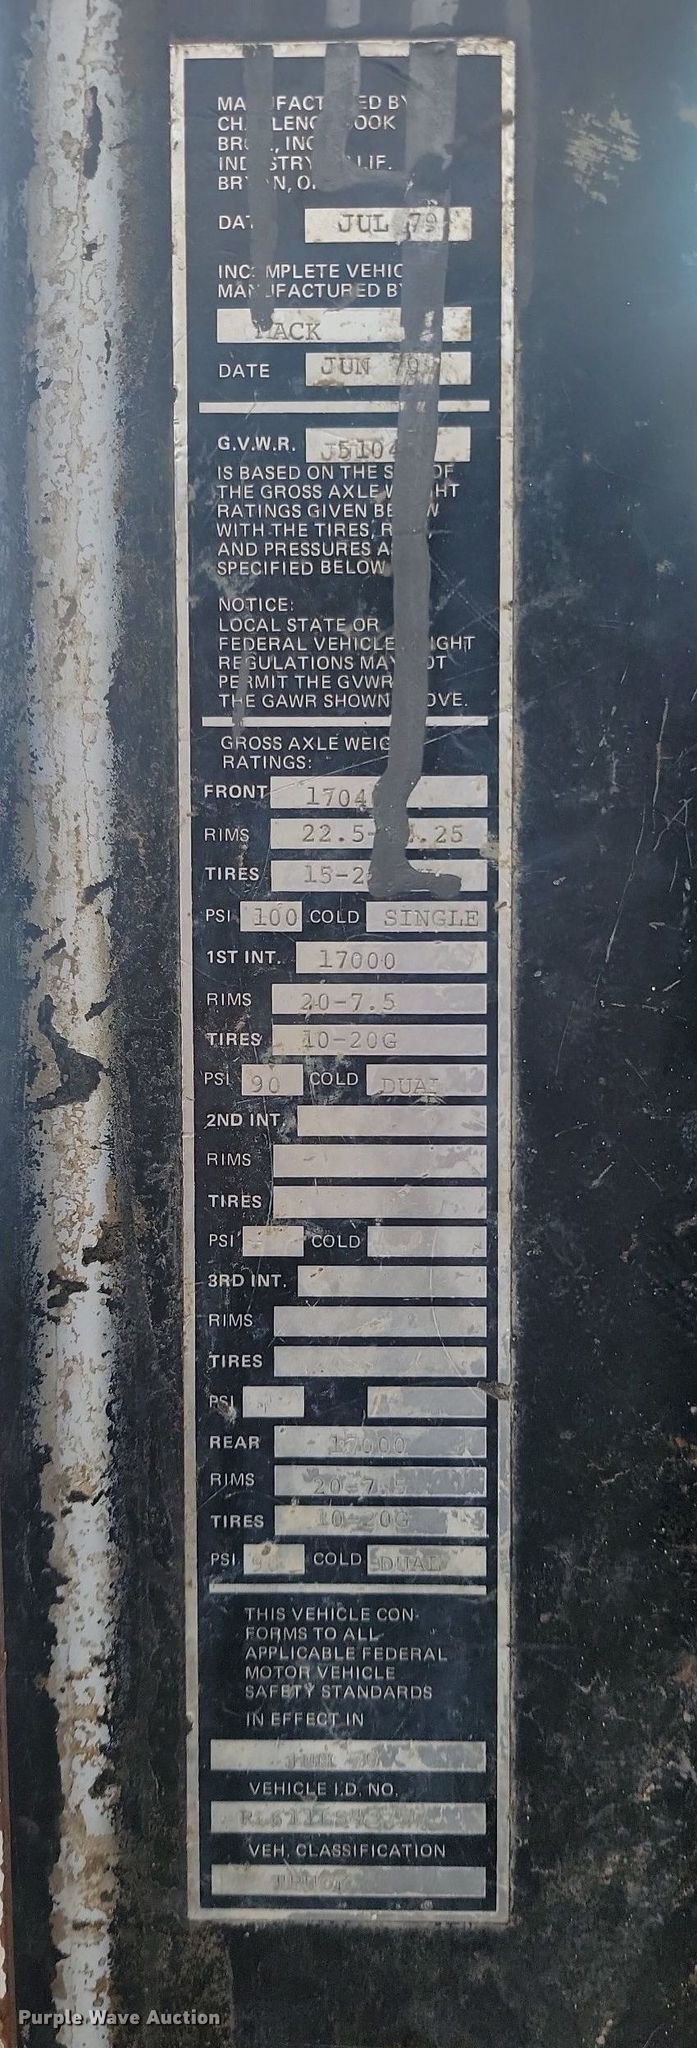 MA UFACT ED BY
CH LENG OOK
BR , INC
IND STRY, LIF.
BR N, O
DAT JUL 79
INC MPLETE VEHIC
MAN UFACTURED BY
MACK
DATE JUN 79
G.V.W.R. J5104
IS BASED ON THE S OF
THE GROSS AXLE W GHT
RATINGS GIVEN BE W
WITH THE TIRES, R ,
AND PRESSURES A
SPECIFIED BELOW
NOTICE:
LOCAL STATE OR
FEDERAL VEHICLE IGHT
REGULATIONS MAY OT
PERMIT THE GVWR
THE GAWR SHOWN OVE.
GROSS AXLE WEIG
RATINGS:
FRONT 1704
RIMS 22.5- .25
TIRES 15-2
PSI 100 COLD SINGLE
1ST INT. 17000
RIMS 20-7.5
TIRES 10-20G
PSI 90 COLD DUAL
2ND INT.
RIMS
TIRES
PSI COLD
3RD INT.
RIMS
TIRES
PSI
REAR 17000
RIMS 20-7.5
TIRES 10-20G
PSI COLD DUAL
THIS VEHICLE CON-
FORMS TO ALL
APPLICABLE FEDERAL
MOTOR VEHICLE
SAFETY STANDARDS
IN EFFECT IN
VEHICLE I.D. NO.
VEH. CLASSIFICATION
Purple Wave Auction